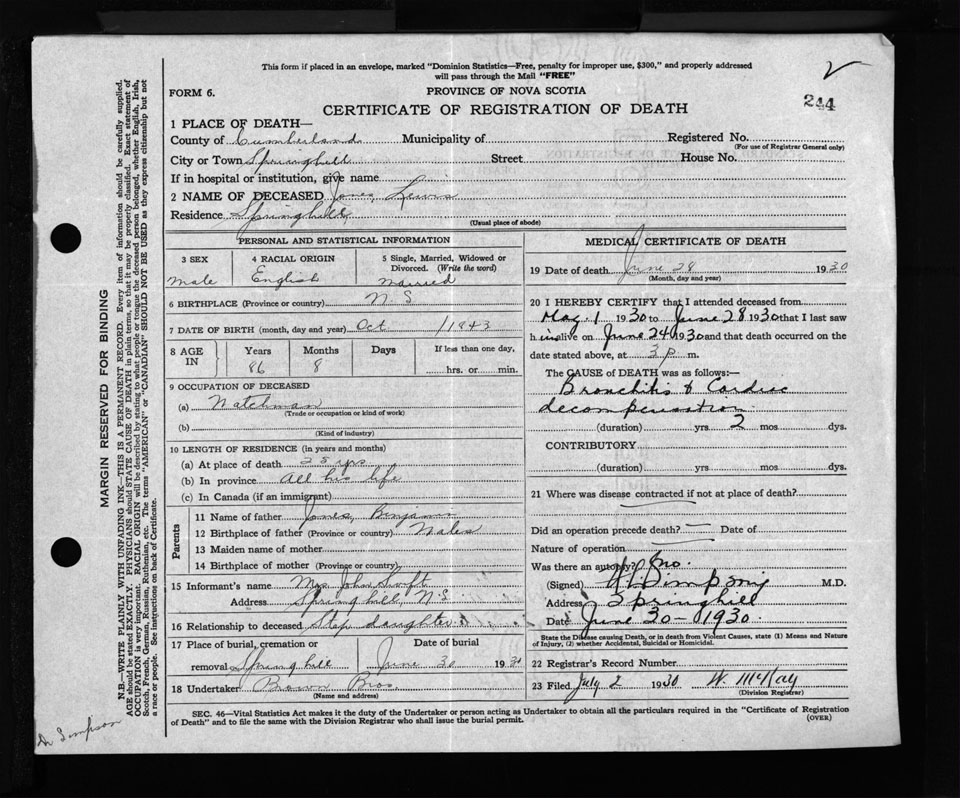 This form if placed in an envelope, marked "Dominion Statistics—Free, penalty for improper use, $300," and properly addressed
will pass through the Mail "FREE"
FORM 6.
PROVINCE OF NOVA SCOTIA
CERTIFICATE OF REGISTRATION OF DEATH
244
1 PLACE OF DEATH—
County of Cumberland Municipality of Registered No.
(For use of Registrar General only)
City or Town Springhill Street House No.
If in hospital or institution, give name
2 NAME OF DECEASED Jones, Lewis
Residence Springhill
(Usual place of abode)
PERSONAL AND STATISTICAL INFORMATION
3 SEX 4 RACIAL ORIGIN 5 Single, Married, Widowed or
Divorced. (Write the word)
Male English Married
6 BIRTHPLACE (Province or country) N.S
7 DATE OF BIRTH (month, day and year) Oct /1943
8 AGE IN Years Months Days If less than one day,
86 8 hrs. or min.
9 OCCUPATION OF DECEASED
(a) Watchman
(Trade or occupation or kind of work)
(b)
(Kind of industry)
10 LENGTH OF RESIDENCE (in years and months)
(a) At place of death 28 yrs
(b) In province All his life
(c) In Canada (if an immigrant)
Parents
11 Name of father Jones, Benjamin
12 Birthplace of father (Province or country) Wales
13 Maiden name of mother
14 Birthplace of mother (Province or country)
15 Informant's name Mrs John Swift
Address Springhill, N.S
16 Relationship to deceased Step daughter
17 Place of burial, cremation or Date of burial
removal Springhill June 30 1930
18 Undertaker Brown Bros.
(Name and address)
MEDICAL CERTIFICATE OF DEATH
19 Date of death June 28 1930
(Month, day and year)
20 I HEREBY CERTIFY that I attended deceased from
May. 1 1930 to June 28 1930 that I last saw
h im alive on June 24 1930 and that death occurred on the
date stated above, at 3 p m.
The CAUSE of DEATH was as follows:—
Bronchitis & Cardiac
decompensation
(duration) yrs. 2 mos dys.
CONTRIBUTORY
(duration) yrs. mos. dys.
21 Where was disease contracted if not at place of death?
Did an operation precede death? — Date of
Nature of operation
Was there an autopsy? no.
(Signed) Simpson M.D.
Address Springhill
Date June 30 - 1930.
State the Disease causing Death, or in death from Violent Causes, state (1) Means and Nature
of Injury, (2) whether Accidental, Suicidal or Homicidal.
22 Registrar's Record Number
23 Filed July 2 1930 W. McKay
(Division Registrar)
SEC. 46—Vital Statistics Act makes it the duty of the Undertaker or person acting as Undertaker to obtain all the particulars required in the "Certificate of Registration
of Death" and to file the same with the Division Registrar who shall issue the burial permit.
(OVER)
MARGIN RESERVED FOR BINDING
N.B.—WRITE PLAINLY WITH UNFADING INK—THIS IS A PERMANENT RECORD. Every item of information should be carefully supplied.
AGE should be stated EXACTLY. PHYSICIANS should STATE CAUSE OF DEATH in plain terms, so that it may be properly classified. Exact statement of
OCCUPATION is very important. RACIAL ORIGIN will be described by stating to what people or tongue the deceased person belonged, whether English, Irish,
Scotch, French, German, Russian, Ruthenian, etc. The terms "AMERICAN" or "CANADIAN" SHOULD NOT BE USED as they express citizenship but not
a race or people. See instructions on back of Certificate.
Dr Simpson